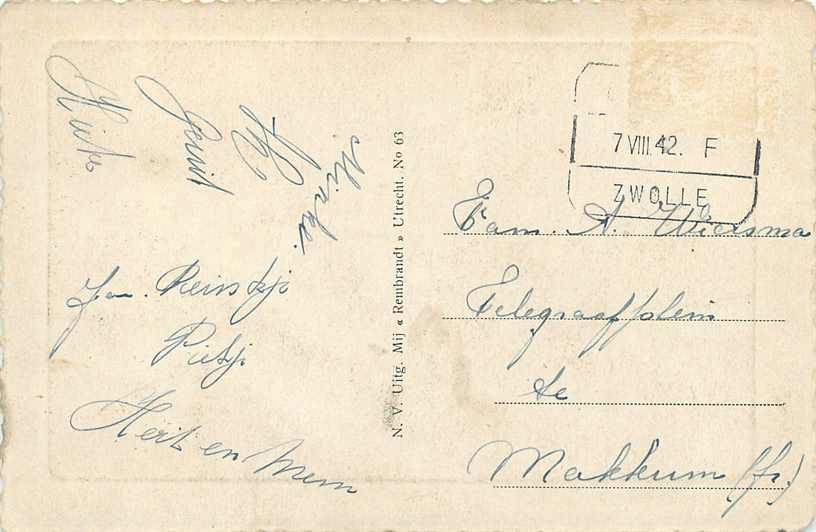 Hieke
Gerrit
Minke.
Jan. Reinskje
Pietje
Heit en Mem
N. V. Uitg. Mij « Rembrandt » Utrecht. No 63
7 VIII.42. F
ZWOLLE
Fam. A. Wiersma
Telegraafplein
te
Makkum (fr.)